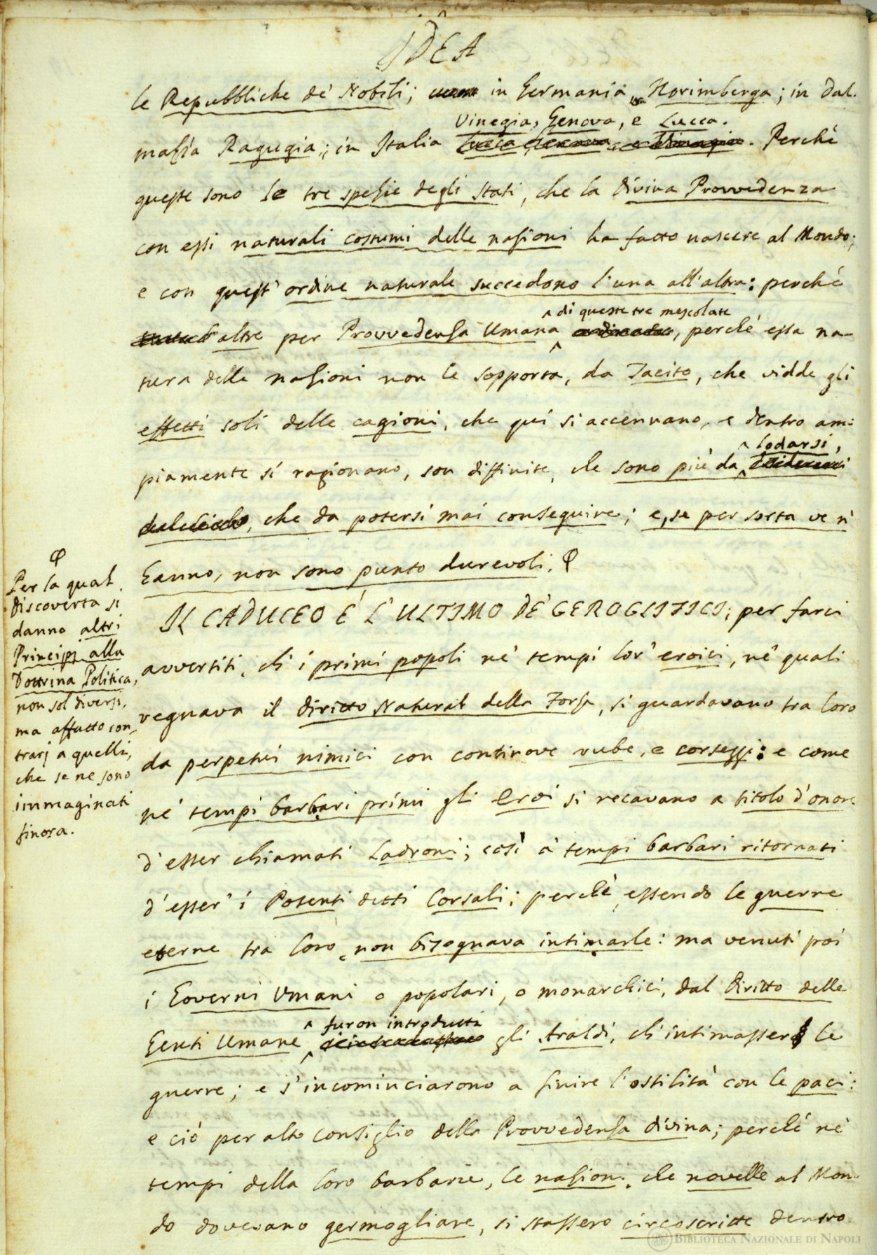 IDEA
le Repubbliche de' Nobili; in Germania Norimberga; in Dal-
Vinegia, Genova, e Lucca.
mazia Ragugia; in Italia Lucca, Genova, e Vinegia. Perchè
queste sono le tre spezie degli Stati, che la Divina Provvedenza
con essi naturali costumi delle nazioni ha fatto nascere al Mondo;
e con quest' ordine naturale succedono l'una all'altra: perchè
^ di queste tre mescolate
altre per Provvedenza Umana ^ ordinate, perchè essa na-
tura delle nazioni non le sopporta, da Tacito, che vidde gli
effetti soli delle cagioni, che quì si accennano, e dentro am-
^ lodarsi,
piamente si ragionano, son diffinite, che sono più da
, che da potersi mai conseguire; e, se per sorta ve n'
hanno, non sono punto durevoli. φ
φ
Per la qual
discoverta si
danno altri
Principj alla
Dottrina Politica,
non sol diversi,
ma affatto con-
trarj a quelli,
che se ne sono
immaginati
finora.
IL CADUCEO È L'ULTIMO DE' GEROGLIFICI; per farci
avvertiti, ch' i primi popoli ne' tempi lor' eroici, ne' quali
regnava il diritto Natural della Forza, si guardavano tra loro
da perpetui nimici con continove rube, e corseggi: e come
ne' tempi barbari primi gli Eroi si recavano a titolo d'onore
d'esser chiamati Ladroni; così a' tempi barbari ritornati
d'esser' i Potenti detti Corsali; perchè, essendo le guerre
eterne tra loro, non bisognava intimarle: ma venuti poi
i Governi Umani o popolari, o monarchici, dal Diritto delle
^ furon introdutti
Genti Umane ^ gli Araldi, ch' intimassero le
guerre; e s'incominciarono a finire l'ostilità con le paci:
e ciò per alto consiglio della Provvedenza divina; perchè ne'
tempi della loro barbarie, le nazioni, che novelle al Mon-
do dovevano germogliare, si stassero circoscritte dentro
BIBLIOTECA NAZIONALE DI NAPOLI